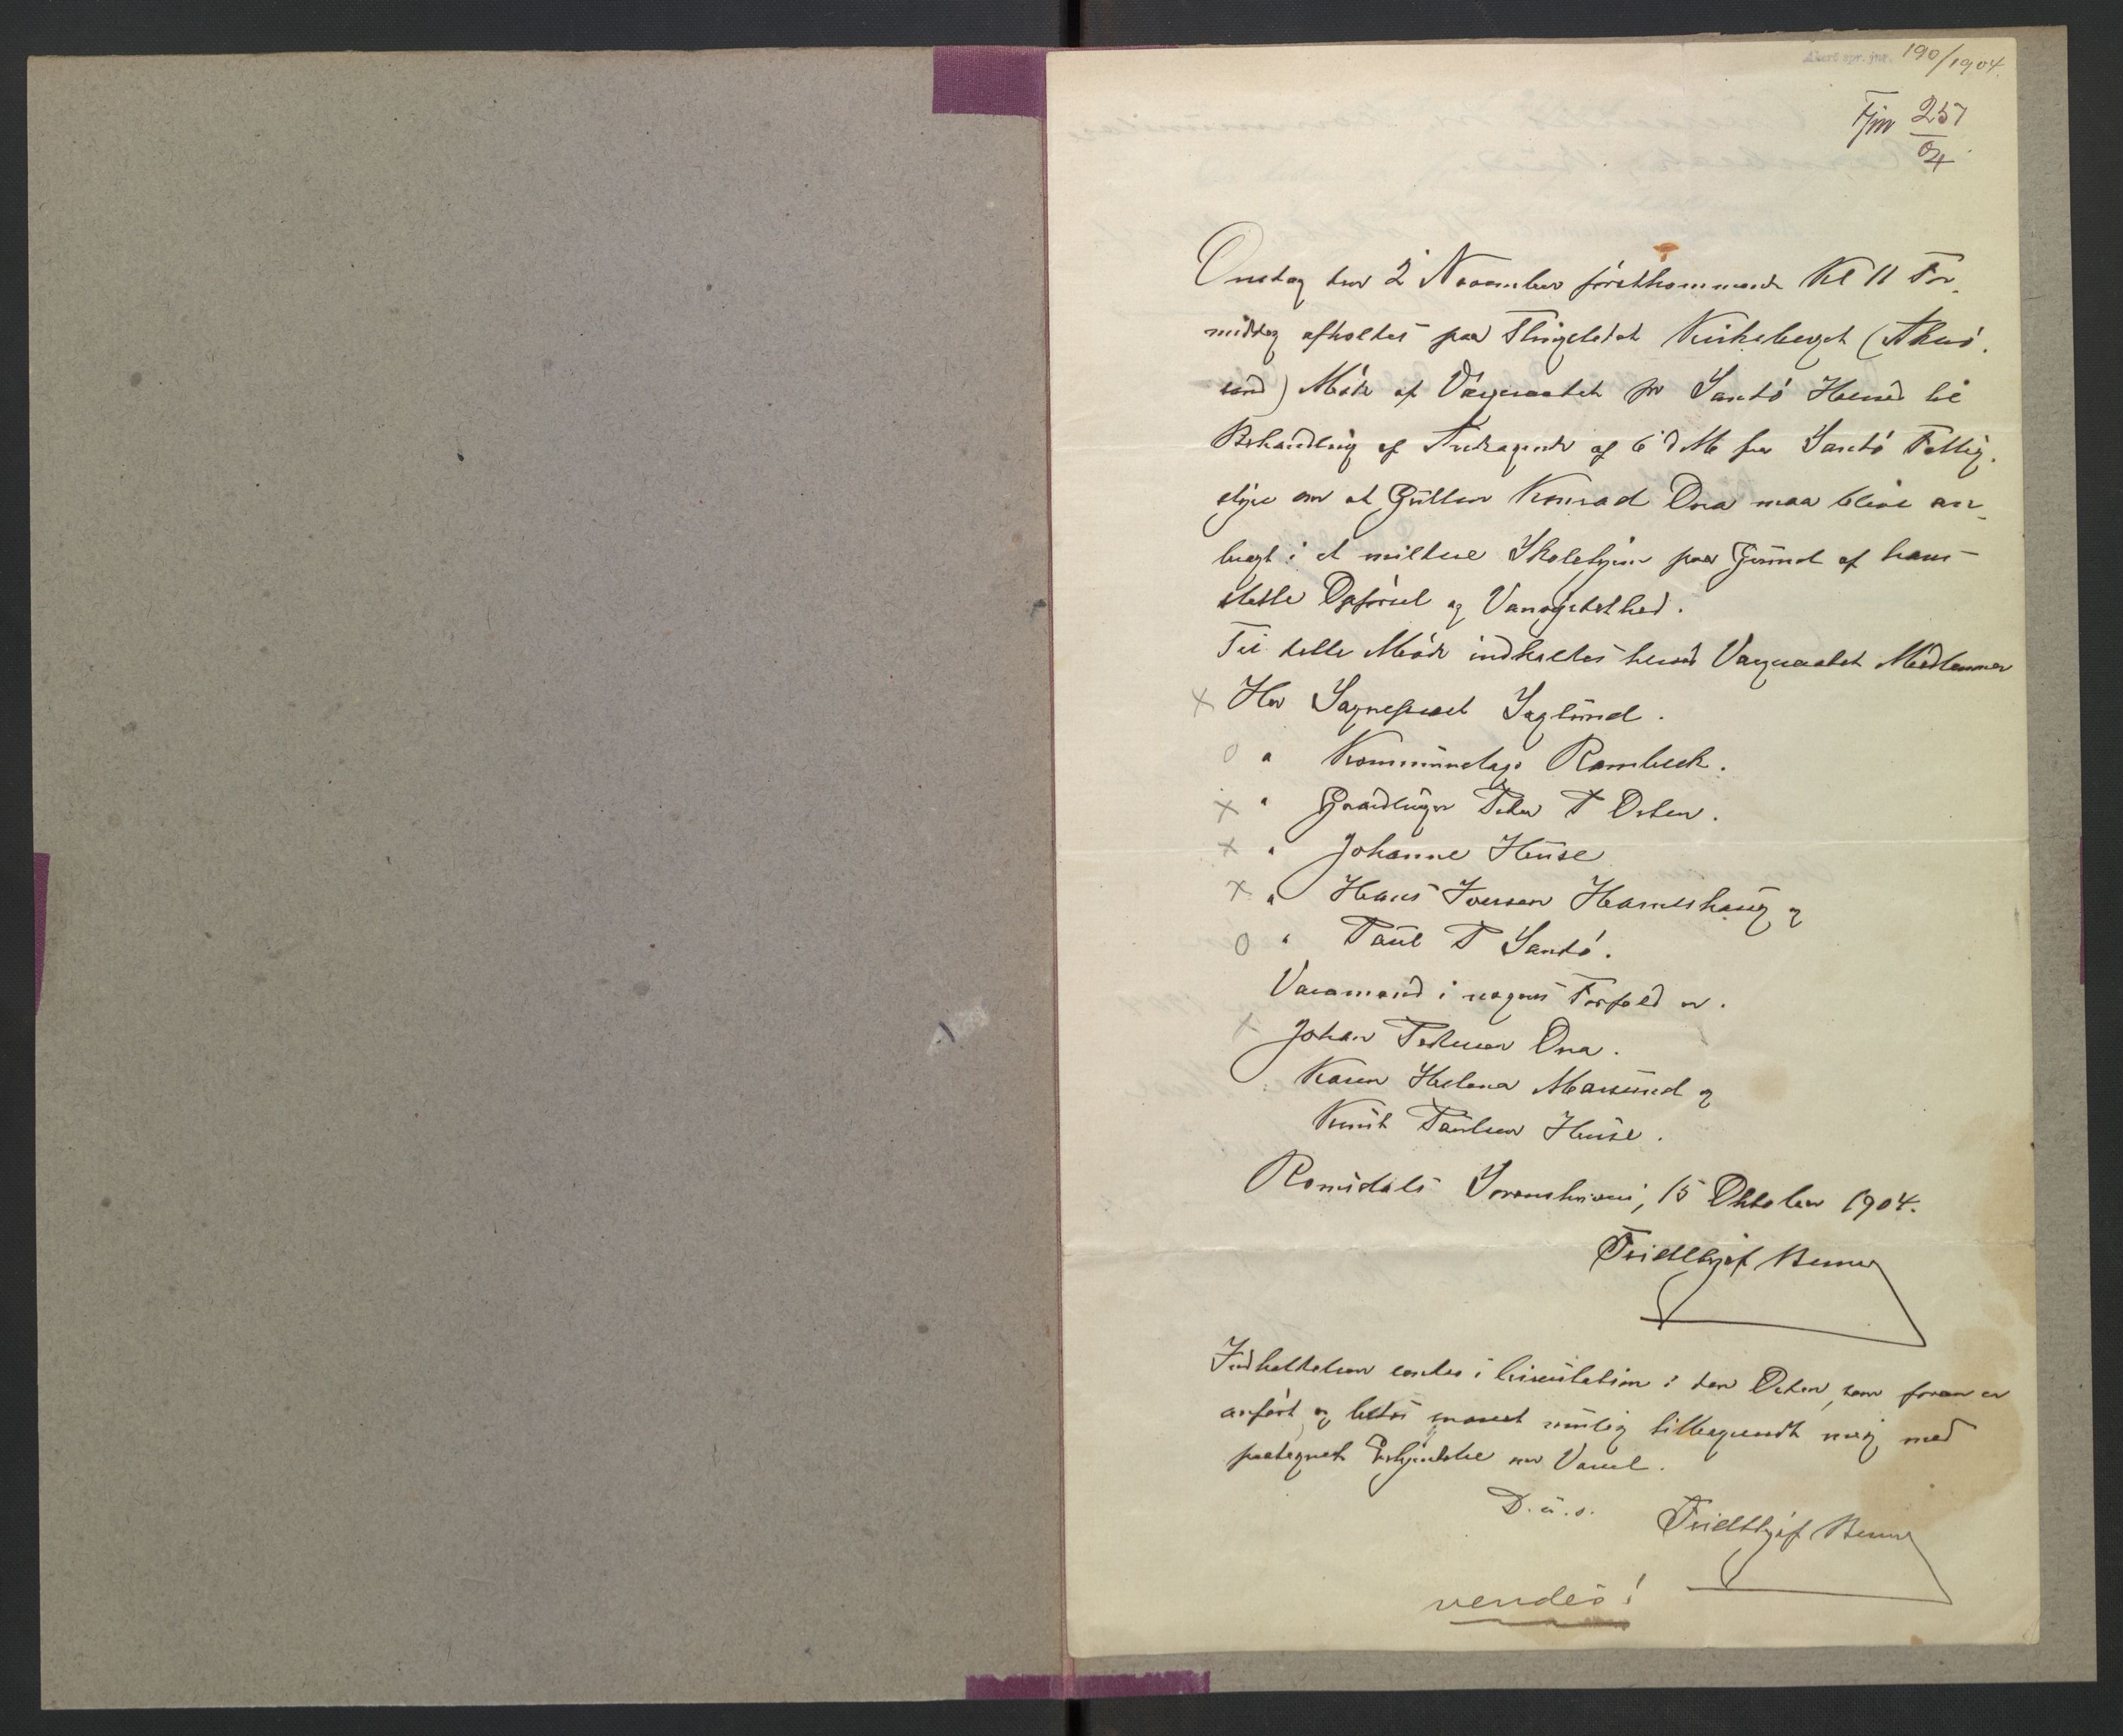 Akerö spr. jnr. 190/1904.
Fjnr 257/04
Onsdag den 2 November förstkommende Kl 11 For-
middag afholdes paa Thingstedet Kirkeberget (Akerö-
sund) Möde af Værgeraadet for Sandö Herred til
Behandling af Andragende af 6 d M fra Sandö Fattig-
styre om at Gutten Konrad Ona maa blive an-
bragt i et mildere Skolehjem paa Grund af hans
slette Opförsel og Vanartethed.
Til dette Möde indkaldes herved Værgeraadets Medlemmer
x Hr Sogneprest Seglund.
o " Kommunelæge Rambech.
x " Gaardbruger Peder P Orten.
x " Johanne Huse
x " Hans Iversen Harnshaug og
o " Paul P Sandö.
Varamænd i nogens Forfald er.
x Johan Pedersen Ona.
Karen Helena Marsund og
Knut Paulsen Huse.
Romsdals Sorenskriveri, 15 Oktober 1904.
Fridthjof Berner
Indkaldelsen sendes i Cirkulation i den Orden, som foran er
anfört og bedes snarest mulig tilbagesendt mig med
paategnet Erkjendelse om Varsel.
D. u. s. Fridthjof Bernер
vendes!